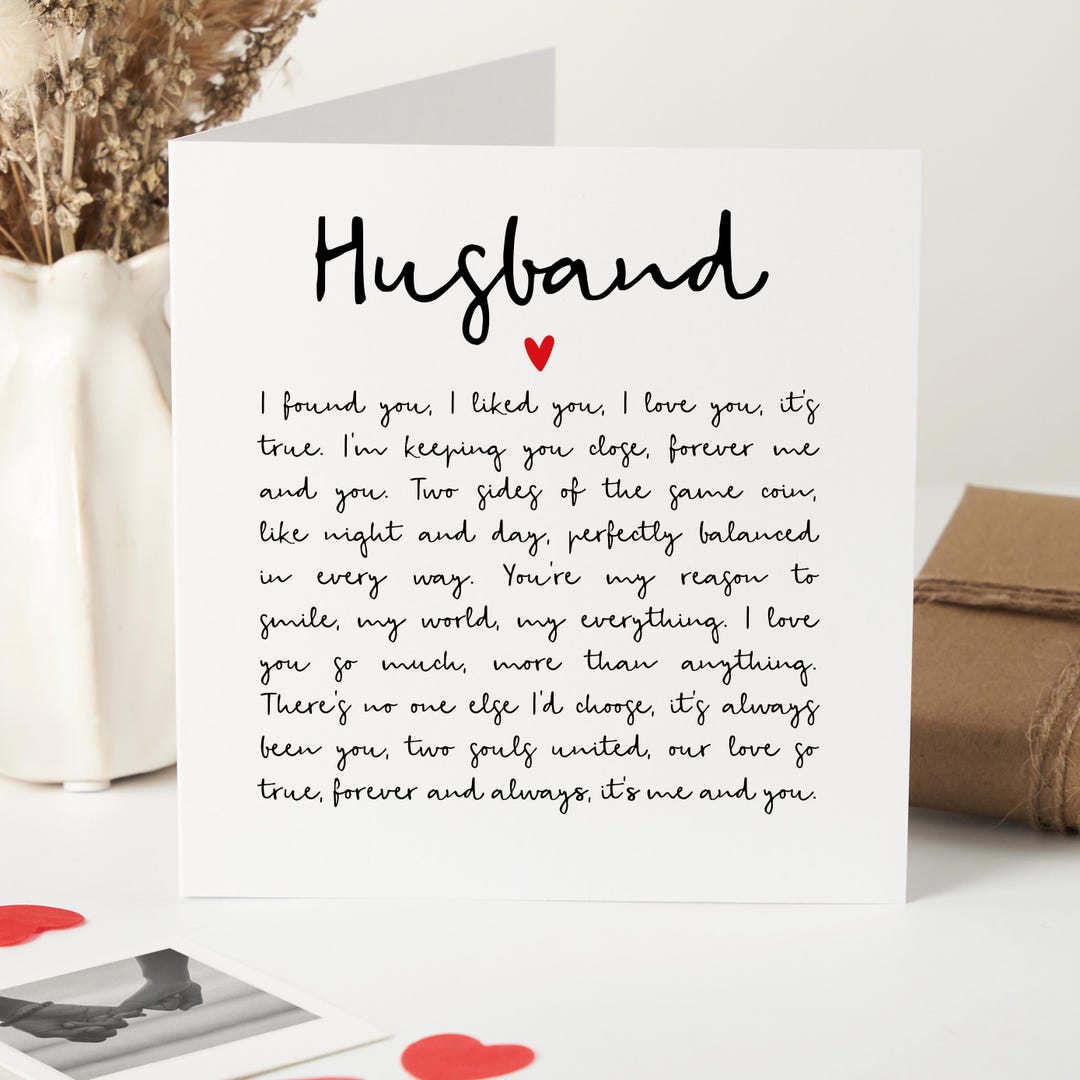 Husband
I found you, I liked you, I love you, it's
true. I'm keeping you close, forever me
and you. Two sides of the same coin,
like night and day, perfectly balanced
in every way. You're my reason to
smile, my world, my everything. I love
you so much, more than anything.
There's no one else I'd choose, it's always
been you, two souls united, our love so
true, forever and always, it's me and you.